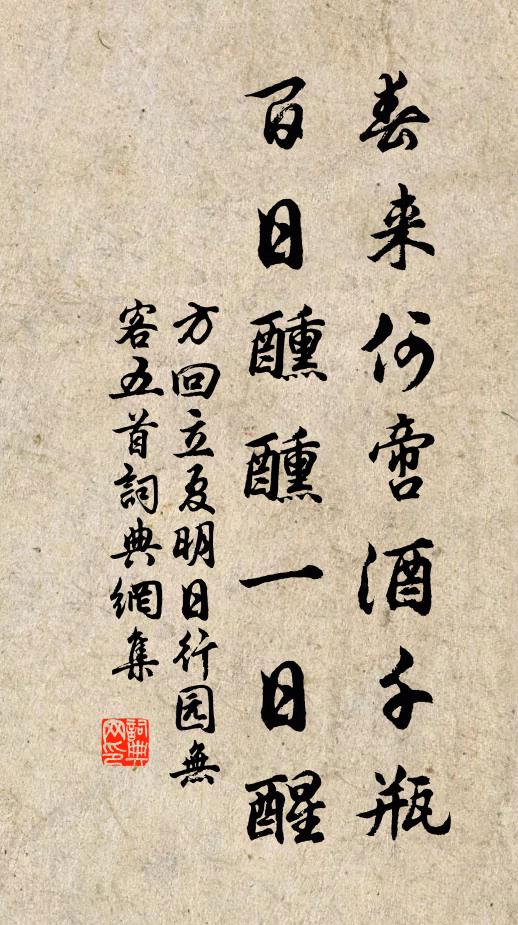 春来何啻酒千瓶
百日醺醺一日醒
方回立夏明日行园無
客五首詞典網集
詞典網印